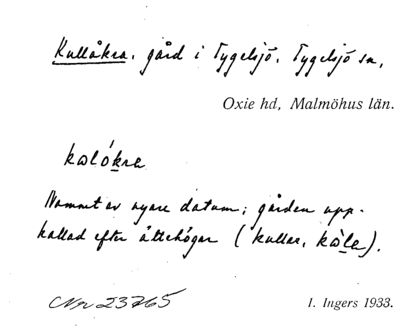 Kullåkra, gård i Tygelsjö, Tygelsjö sn,
Oxie hd, Malmöhus län.
kolókra
Namnet av nyare datum; gården upp-
kallad efter ättehögar (kullar, kòla).
Nr 23765
I. Ingers 1933.